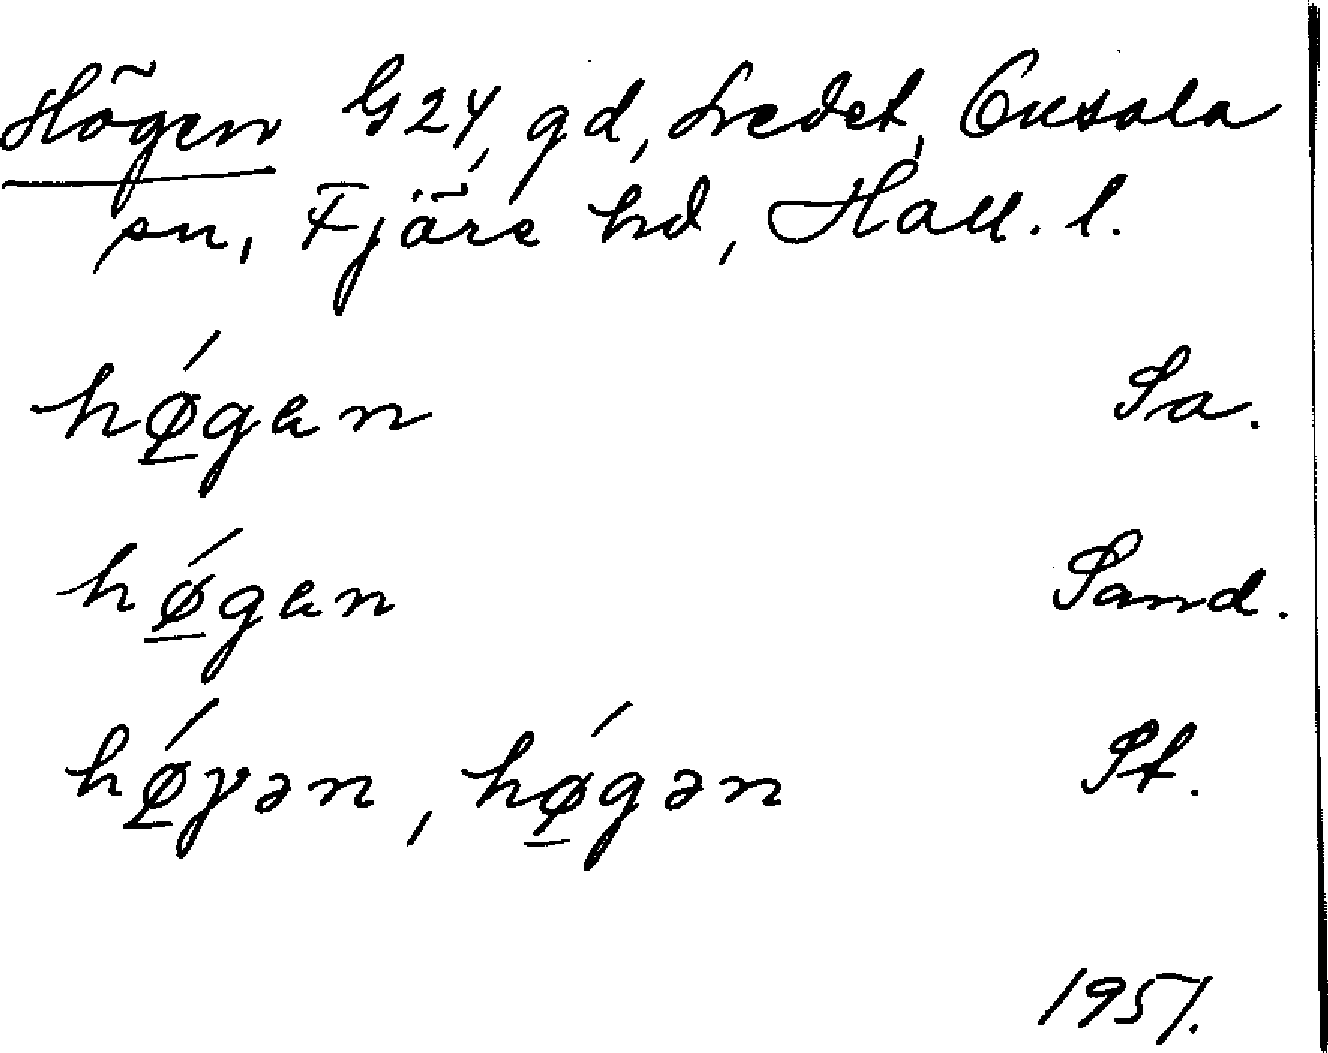 Högen G24, gd, Lredet, Onsala
sn, Fjäre hd, Hall. l.
hǿ̲gan Sa.
hǿ̲gan Sand.
hǿ̲γən, hǿ̲gən St.
1951.